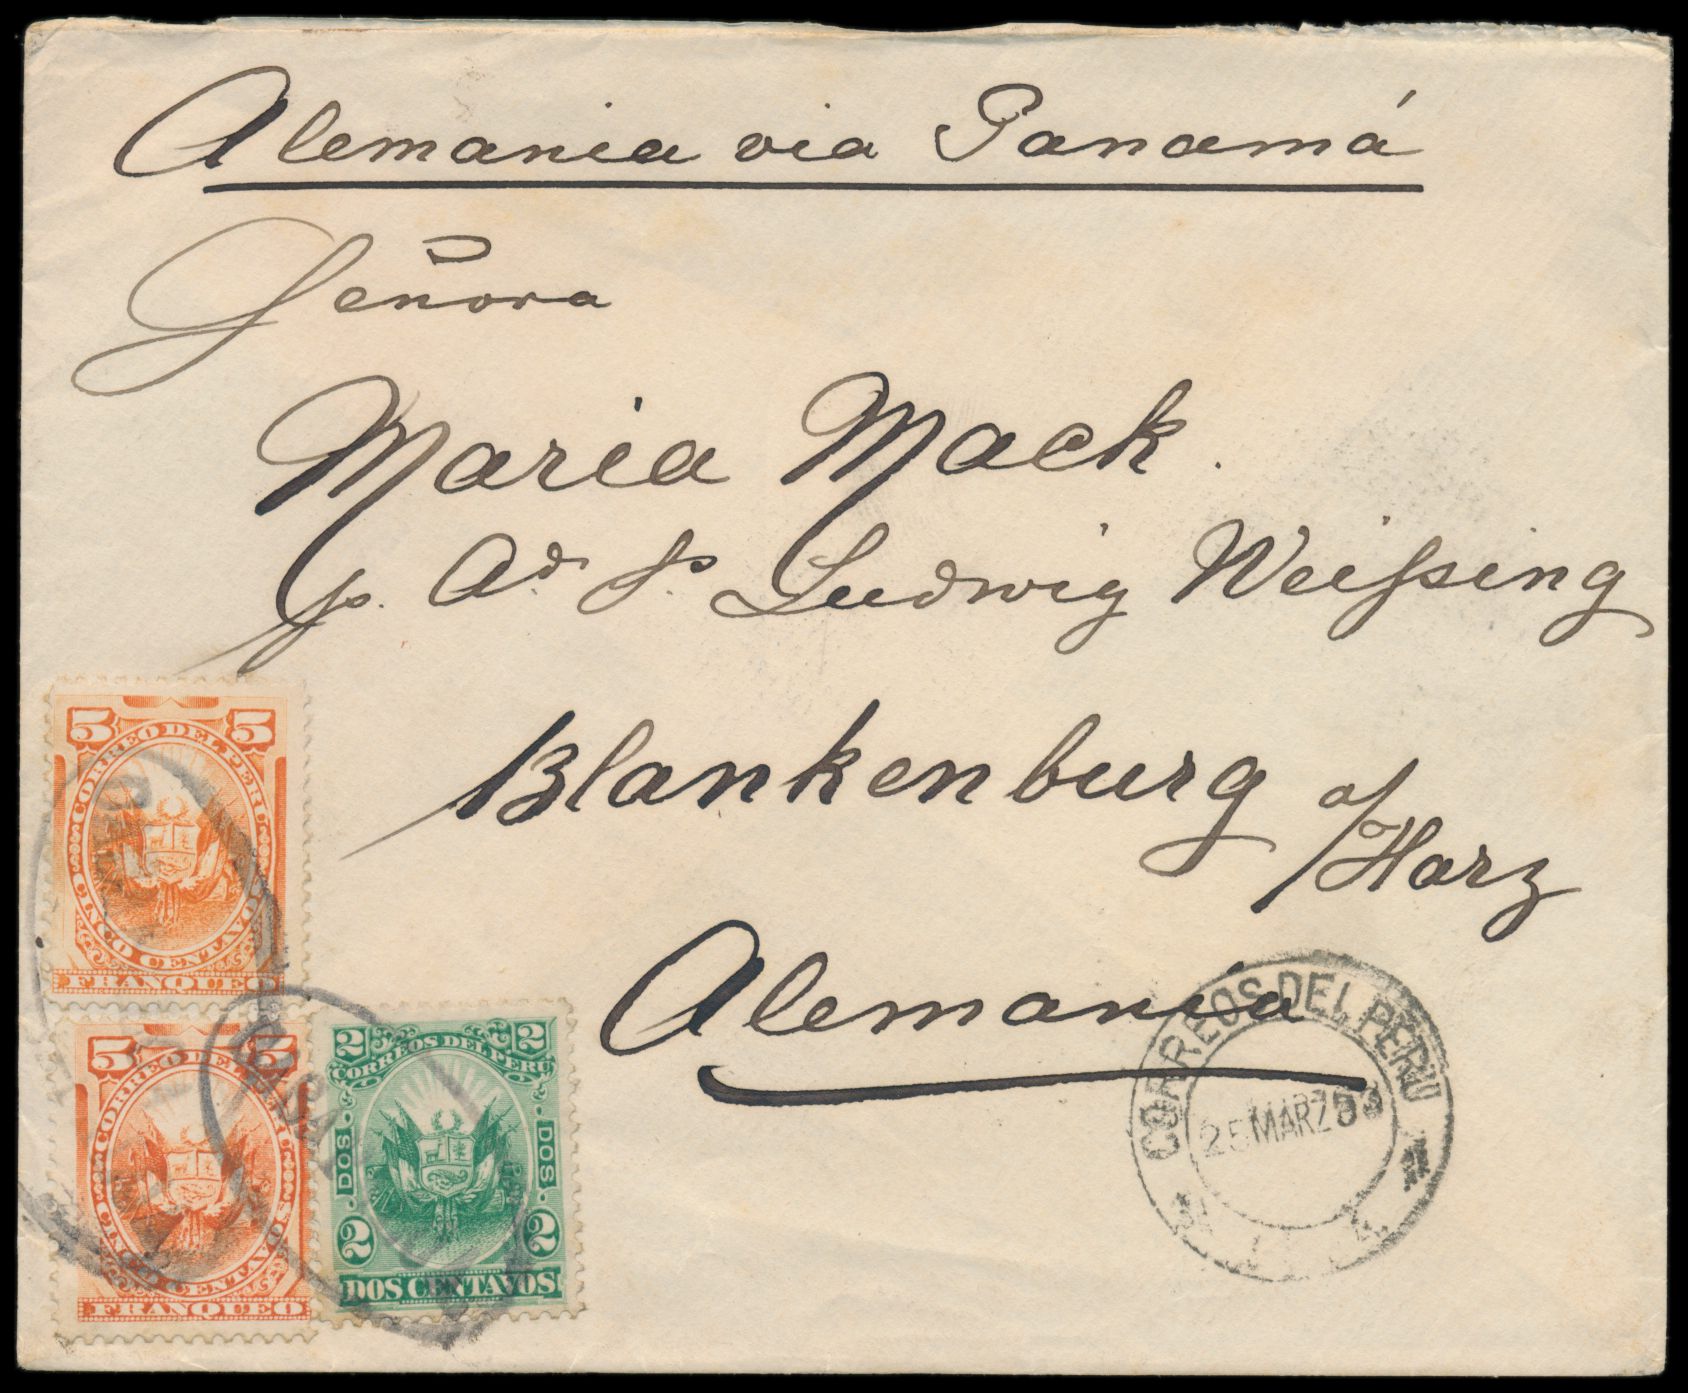 Alemania via Panamá
Señora
Maria Mack.
p. Ad. Ludwig Weißsing
Blankenburg a/Harz
Alemania
5 5
CORREO DEL PERU
CINCO CENTAVOS
FRANQUEO
5 5
CORREO DEL PERU
CINCO CENTAVOS
FRANQUEO
2 2
CORREOS DEL PERU
DOS DOS
2 2
DOS CENTAVOS
CORREOS DEL PERU
25 MARZ 83